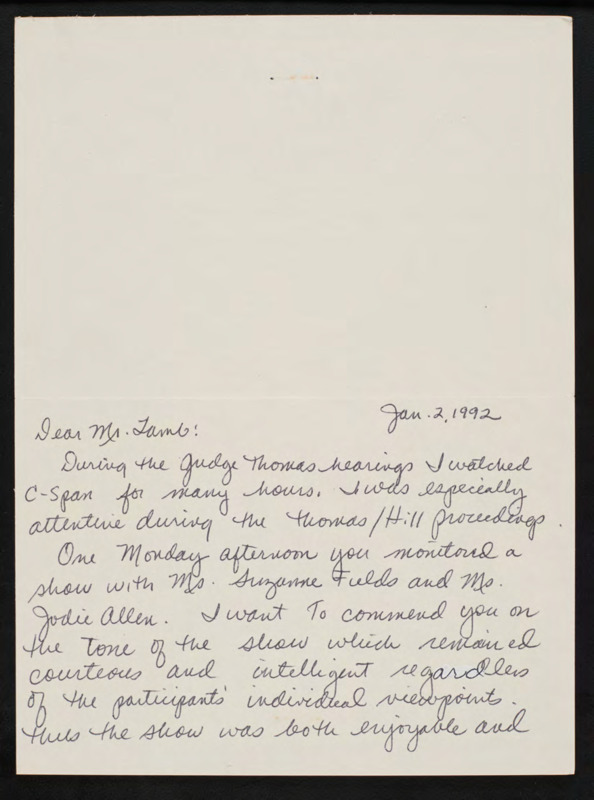 Jan. 2, 1992
Dear Mr. Lamb:
During the Judge Thomas hearings I watched
C-Span for many hours. I was especially
attentive during the Thomas/Hill proceedings.
One Monday afternoon you monitored a
show with Ms. Suzanne Fields and Ms.
Jodie Allen. I want to commend you on
the tone of the show which remained
courteous and intelligent regardless
of the participants' individual viewpoints.
Thus the show was both enjoyable and